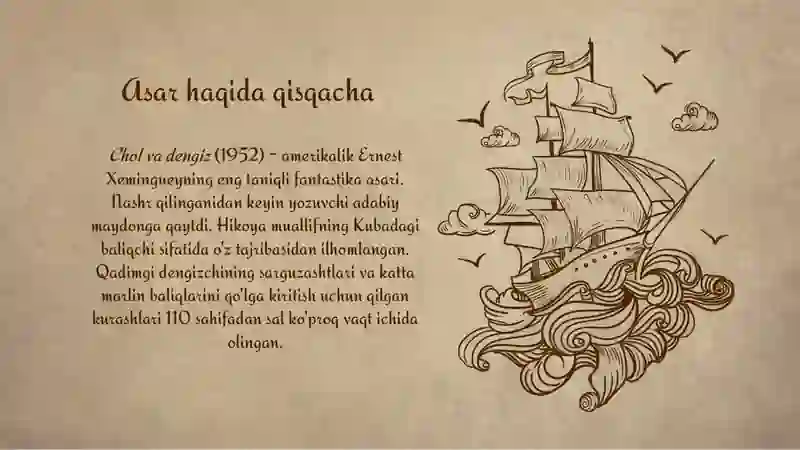 Asar haqida qisqacha
Chol va dengiz (1952) - amerikalik Ernest
Xemingueyning eng taniqli fantastika asari.
Nashr qilinganidan keyin yozuvchi adabiy
maydonga qaytdi. Hikoya muallifning Kubadagi
baliqchi sifatida o'z tajribasidan ilhomlangan.
Qadimgi dengizchining sarguzashtlari va katta
marlin baliqlarini qo'lga kiritish uchun qilgan
kurashlari 110 sahifadan sal ko'proq vaqt ichida
olingan.